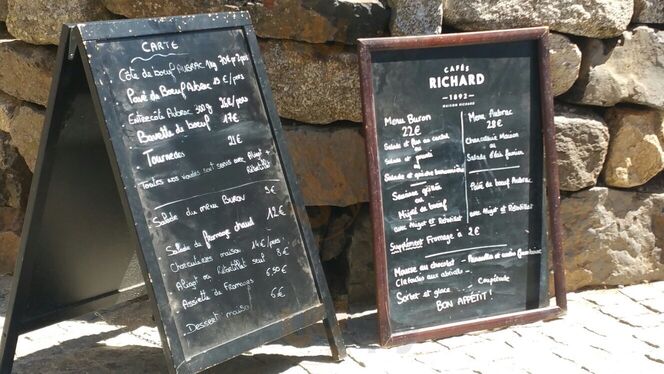 CARTE
Côte de bœuf AUBRAC 1kg pr 2 pers
Pavé de Boeuf Aubrac 25 €/pers
Entrecote Aubrac 300g 26€/pers
Bavette de boeuf 17€
Tournedos 21€
Toutes nos viandes sont servis avec Aligot + Rétortillat
Salade du menu BURON 9€
Salade de fromage chaud 12€
Charcuteries maison 14€/pers
Aligot ou Rétortillat seul 8€
Assiette de Fromages 6,50€
Dessert maison 6€
CAFÉS
RICHARD
1892
MAISON RICHARD
Menu Buron
22€
Salade et flan au cantal
ou
Salade et pounti
ou
Salade et quiche
Saucisse grillée
ou
Mijoté de boeuf
avec Aligot et Rétortillat
Menu Aubrac
28€
Charcuterie Maison
ou
Salade d'été fermier
Pavé de boeuf Aubrac
avec Aligot et Rétortillat
Supplément Fromage à 2€
Mousse au chocolat
Clafoutis aux abricots
Sorbet et glace - Coupétade
BON APPÉTIT!